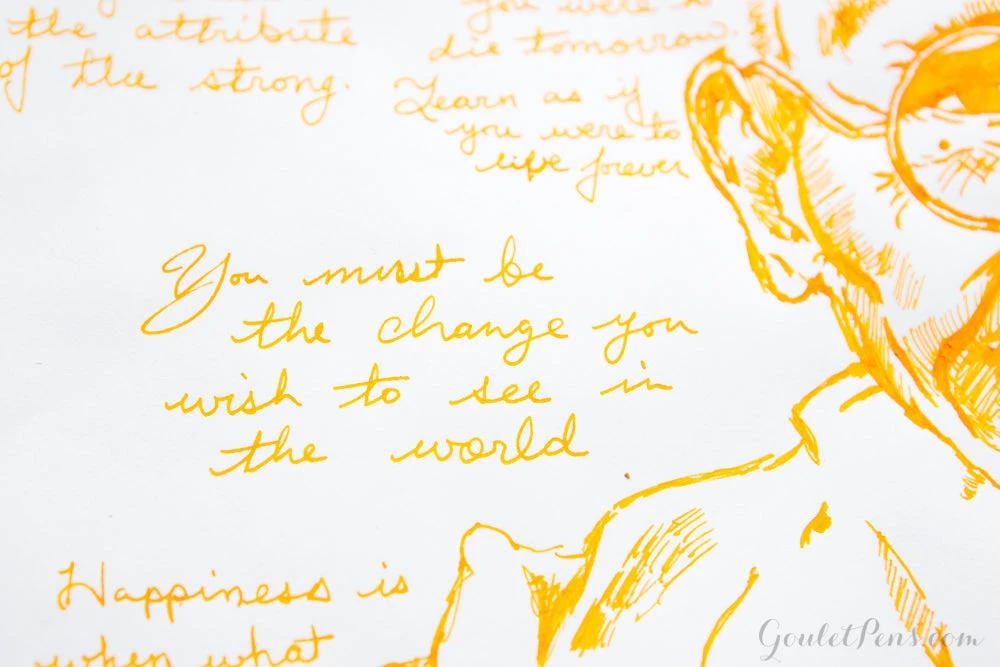 the attribute
of the strong.
You were to
die tomorrow.
Learn as if
you were to
live forever
You must be
the change you
wish to see in
the world
Happiness is
when what
GouletPens.com